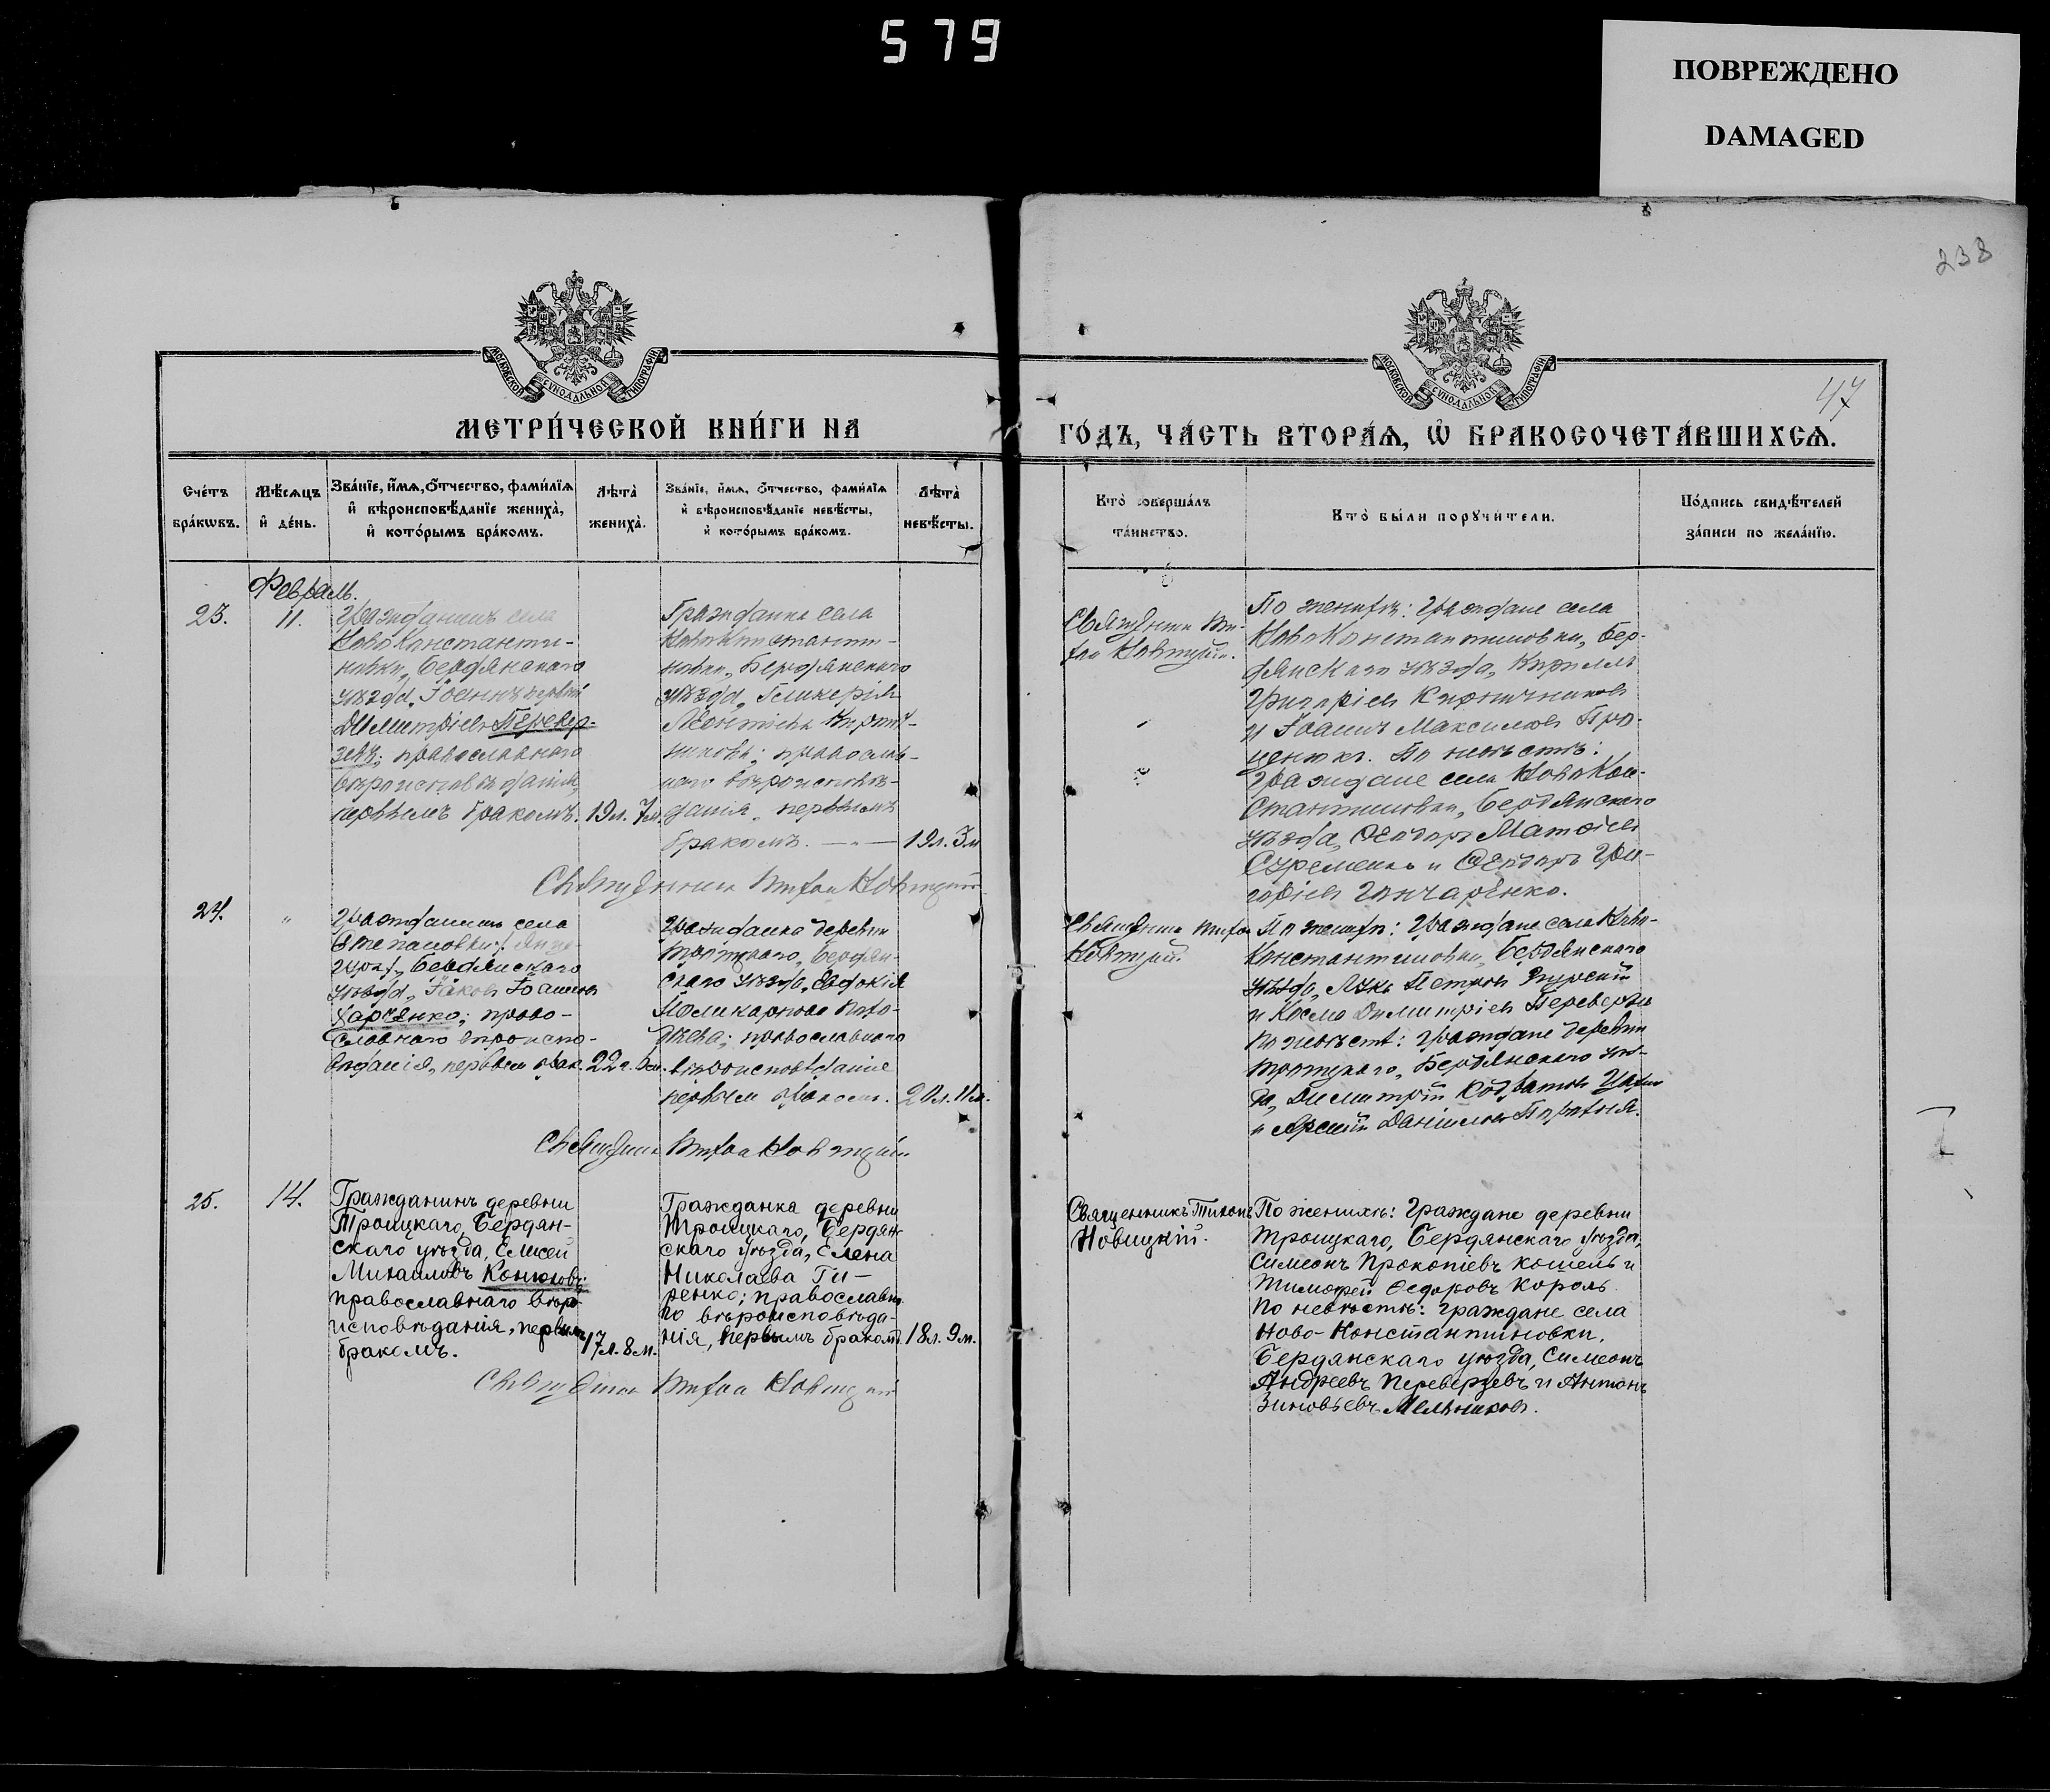 579
ПОВРЕЖДЕНО
DAMAGED
238
47
МОСКОВСКОЙ СѴНОДАЛЬНОЙ ТИПОГРАФІИ
МОСКОВСКОЙ СѴНОДАЛЬНОЙ ТИПОГРАФІИ
МЕТРИ́ЧЕСКОЙ КНИ́ГИ НА
ГО́ДЪ, ЧА́СТЬ ВТОРА́Ѧ, Ѽ БРАКОСОЧЕТА́ВШИХСѦ.
Сче́тъ
бра́кѡвъ.
Мѣ́сѧцъ
и҆ де́нь.
Зва́нїе, и҆́мѧ, ѻ҆́тчество, фами́лїѧ
и҆ вѣроисповѣ́данїе жениха̀,
и҆ кото́рымъ бра́комъ.
Лѣта̀
жениха̀.
Зва́нїе, и҆́мѧ, ѻ҆́тчество, фами́лїѧ
и҆ вѣроисповѣ́данїе невѣ́сты,
и҆ кото́рымъ бра́комъ.
Лѣта̀
невѣ́сты.
Кто̀ соверша́лъ
та́инство.
Кто̀ бы́ли порꙋчи́тели.
По́дпись свидѣ́телей
за́писи по жела́нїю.
Февраль.
23.
11.
Гражданинъ села
Ново Константи-
новки, Бердянскаго
уѣзда, Іоаннъ первый
Димитріевъ Перевер-
зевъ; православнаго
вѣроисповѣданія,
первымъ бракомъ.
19 л. 7 м.
Гражданка села
Ново Константи-
новки, Бердянскаго
уѣзда, Гликерія
Леонтіева Кирпич-
никова; православ-
наго вѣроисповѣ-
данія, первымъ
бракомъ.
19 л. 3 м
Священникъ Ти-
хон Новицкій.
По женихѣ: Граждане села
Ново Константиновки, Бер-
дянскаго уѣзда, Кириллъ
Григоріевъ Кирпичниковъ
и Іоаннъ Максимовъ Про-
ценко. По невѣстѣ:
Граждане села Ново Кон-
стантиновки, Бердянскаго
уѣзда, Ѳеодоръ Матѳіевъ
Еременко и Ѳеодоръ Гри-
горіевъ Гончаренко.
Священникъ Тихон Новицкій
24.
"
Гражданинъ села
Степановки
Бердянскаго
уѣзда, Іаковъ Іоанновъ
Харченко; право-
славнаго вѣроиспо-
вѣданія, первым брак.
22 л.
Гражданка деревни
Троицкаго, Бердян-
скаго уѣзда, Евдокія
Поликарпова
православнаго
вѣроисповѣданія
первым браком.
20 л. 11 м.
Священникъ Тихон
Новицкій.
По женихѣ: Граждане села Ново-
Константиновки, Бердянскаго
уѣзда, Лука Петровъ
и Косма Димитріев Переверзев
По невѣст: Граждане деревни
Троицкаго, Бердянскаго уѣз-
да, Димитрій
и Арсеній Даніиловъ
Священникъ Тихон Новицкій
25.
14.
Гражданинъ деревни
Троицкаго, Бердян-
скаго уѣзда, Елисей
Михаиловъ Конюховъ;
православнаго вѣро-
исповѣданія, первымъ
бракомъ.
17 л. 8 м.
Гражданка деревни
Троицкаго, Бердян-
скаго уѣзда, Елена
Николаева Ти-
ренко; православна-
го вѣроисповѣда-
нія, первымъ бракомъ
18 л. 9 м.
Священникъ Тихонъ
Новицкій.
По женихѣ: Граждане деревни
Троицкаго, Бердянскаго уѣзда,
Симеонъ Прокопіевъ Кошель и
Тимофей Федоровъ Король.
По невѣстѣ: граждане села
Ново-Константиновки,
Бердянскаго уѣзда, Симеонъ
Андреевъ Переверзевъ и Антонъ
Зиновьевъ Мельниковъ.
Священник Тихон Новицкий